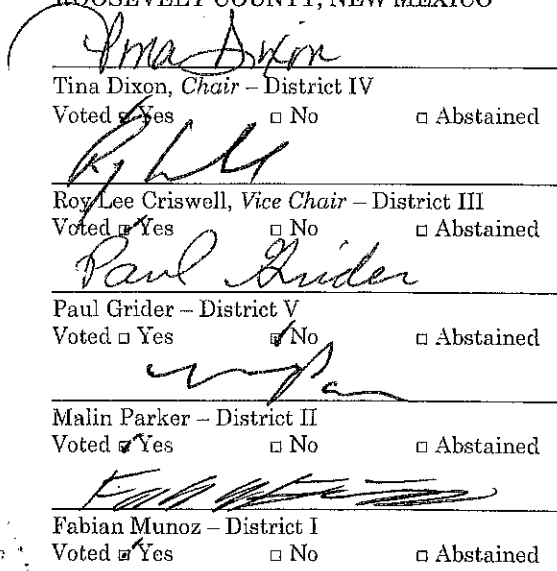 ROOSEVELT COUNTY, NEW MEXICO
Tina Dixon
Tina Dixon, Chair – District IV
Voted ☑ Yes □ No □ Abstained
Roy Lee Criswell, Vice Chair – District III
Voted ☑ Yes □ No □ Abstained
Paul Grider
Paul Grider – District V
Voted □ Yes ☑ No □ Abstained
Malin Parker – District II
Voted ☑ Yes □ No □ Abstained
Fabian Munoz – District I
Voted ☑ Yes □ No □ Abstained